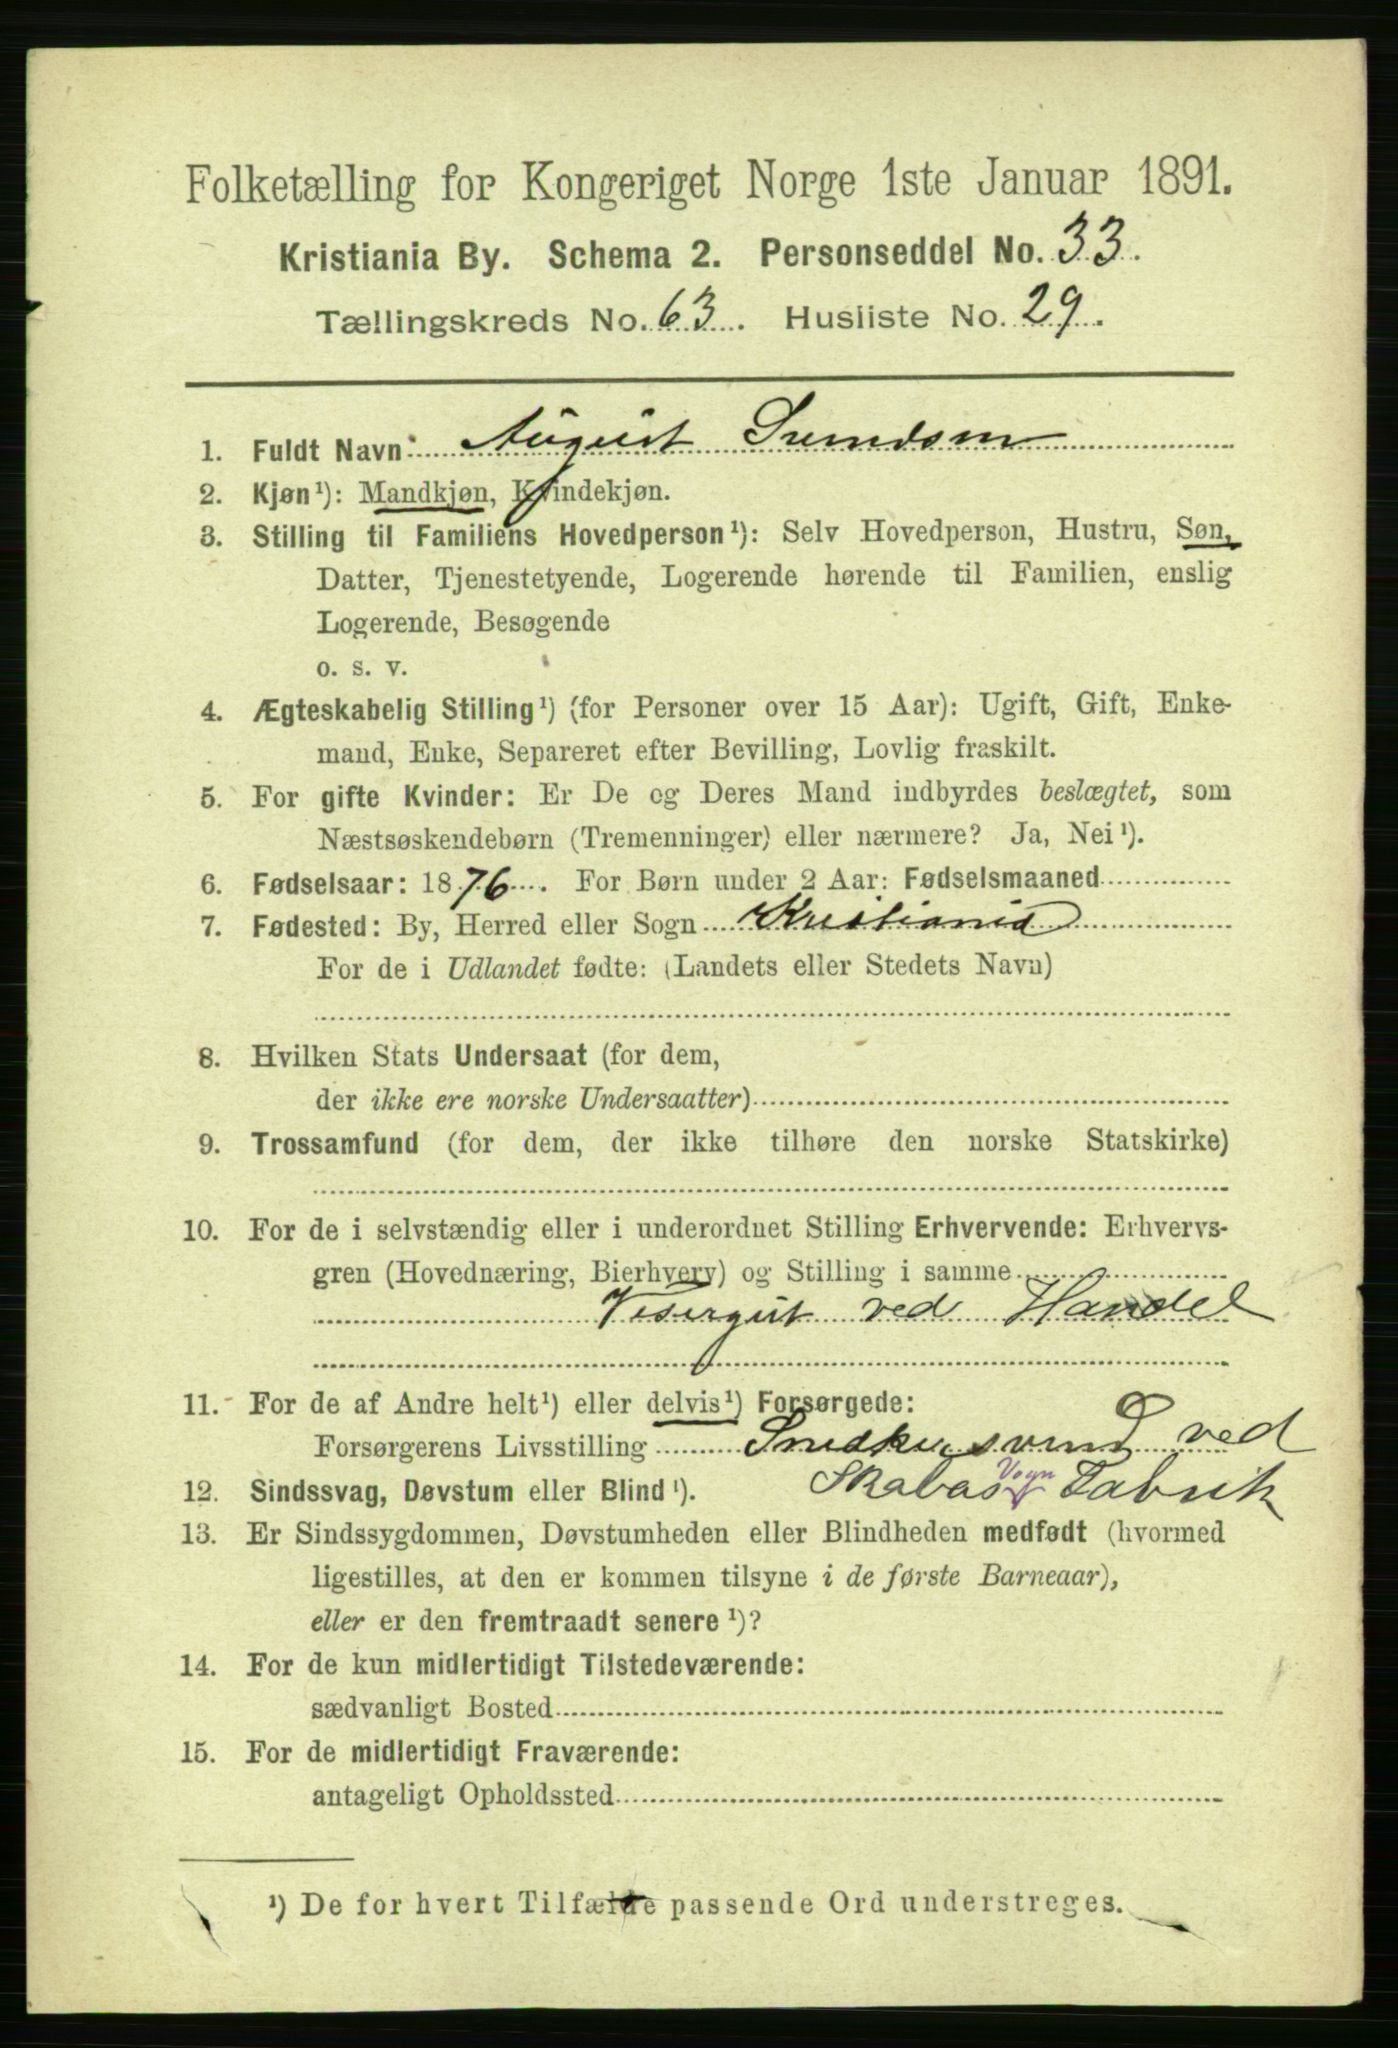 Folketælling for Kongeriget Norge 1ste Januar 1891.
Kristiania By. Schema 2. Personseddel No. 33.
Tællingskreds No. 63. Husliste No. 29.
1. Fuldt Navn: August Svendsen
2. Kjøn¹): Mandkjøn, Kvindekjøn.
3. Stilling til Familiens Hovedperson¹): Selv Hovedperson, Hustru, Søn,
Datter, Tjenestetyende, Logerende hørende til Familien, enslig
Logerende, Besøgende
o. s. v.
4. Ægteskabelig Stilling¹) (for Personer over 15 Aar): Ugift, Gift, Enke-
mand, Enke, Separeret efter Bevilling, Lovlig fraskilt.
5. For gifte Kvinder: Er De og Deres Mand indbyrdes beslægtet, som
Næstsøskendebørn (Tremenninger) eller nærmere? Ja, Nei¹).
6. Fødselsaar: 1876. For Børn under 2 Aar: Fødselsmaaned
7. Fødested: By, Herred eller Sogn Kristiania
For de i Udlandet fødte: (Landets eller Stedets Navn)
8. Hvilken Stats Undersaat (for dem,
der ikke ere norske Undersaatter)
9. Trossamfund (for dem, der ikke tilhøre den norske Statskirke)
10. For de i selvstændig eller i underordnet Stilling Erhvervende: Erhvervs-
gren (Hovednæring, Bierhverv) og Stilling i samme
Visergut ved Handel
11. For de af Andre helt¹) eller delvis¹) Forsørgede:
Forsørgerens Livsstilling Snedkersvend ved
12. Sindssvag, Døvstum eller Blind¹). Skabos Vogn Fabrik
13. Er Sindssygdommen, Døvstumheden eller Blindheden medfødt (hvormed
ligestilles, at den er kommen tilsyne i de første Barneaar),
eller er den fremtraadt senere¹)?
14. For de kun midlertidigt Tilstedeværende:
sædvanligt Bosted
15. For de midlertidigt Fraværende:
antageligt Opholdssted
¹) De for hvert Tilfælde passende Ord understreges.